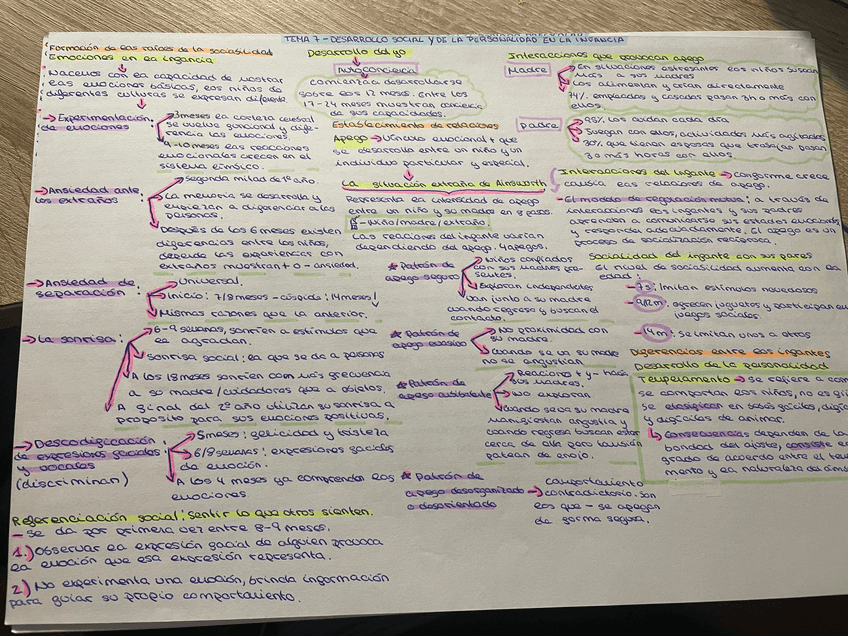 TEMA 7 - DESARROLLO SOCIAL Y DE LA PERSONALIDAD EN LA INFANCIA
Formación de las raíces de la sociabilidad
Emociones en la infancia
Nacemos con la capacidad de mostrar
las emociones básicas, los niños de
diferentes culturas se expresan diferente.
→ Experimentación
de emociones
3 meses la corteza cerebral
se vuelve funcional y dife-
rencia las emociones.
9-10 meses las reacciones
emocionales crecen en el
sistema límbico.
→ Ansiedad ante
los extraños
Segunda mitad de 1º año.
La memoria se desarrolla y
empiezan a diferenciar a las
personas.
Después de los 6 meses existen
diferencias entre los niños,
depende las experiencias con
extraños muestran + o - ansiedad.
→ Ansiedad de
separación:
Universal.
Inicio: 7/8 meses - cúspide: 14 meses
Mismas razones que la anterior.
→ La sonrisa:
6-9 semanas, sonríen a estímulos que
le agradan.
Sonrisa social: la que se da a personas
A los 18 meses sonríen con más frecuencia
a su madre/cuidadoras que a objetos.
A final del 2º año utilizan su sonrisa a
propósito para sus emociones positivas.
→ Descodificación
de expresiones faciales
y vocales
(discriminan)
5 meses: felicidad y tristeza
6/9 semanas: expresiones faciales
de emoción.
A los 4 meses ya comprenden las
emociones.
Referenciación social: Sentir lo que otros sienten.
- se da por primera vez entre 8-9 meses.
1.) Observar la expresión facial de alguien provoca
la emoción que esa expresión representa.
2.) No experimenta una emoción, brinda información
para guiar su propio comportamiento.
Desarrollo del yo
Autoconciencia
comienza a desarrollarse
sobre los 12 meses. Entre los
17-24 meses muestran conciencia
de sus capacidades.
Establecimiento de relaciones
Apego → Vínculo emocional + que
se desarrolla entre niño y un
individuo particular y especial.
La situación extraña de Ainsworth
Representa la intensidad de apego
entre un niño y su madre en 8 pasos.
- Niño/madre/extraño.
Las reacciones del infante varían
dependiendo del apego. 4 apegos.
★ Patrón de
apego seguro
Niños confiados
con sus madres pre-
sentes.
Exploran independientes
Van junto a su madre
cuando regresa y buscan el
contacto.
★ Patrón de
apego evasivo
No proximidad con
su madre.
Cuando se va su madre
no se angustian
★ Patrón de
apego ambivalente
Reacciones + y - hacia
sus madres.
No exploran
Cuando se va su madre
manifiestan angustia y
cuando regresa buscan estar
cerca de ella pero también
patean de enojo.
★ Patrón de
apego desorganizado
o desorientado
→ comportamiento
contradictorio. Son
los que - se apegan
de forma segura.
Interacciones que provocan apego
Madre
En situaciones estresantes los niños buscan
más a sus madres
Los alimentan y crían directamente
74% empleadas y casadas pasan 3h o más con
ellos.
Padre
95%, los cuidan cada día
Juegan con ellos, actividades más agitadas
30%, que tienen esposas que trabajan pasan
3 o más horas con ellos.
Interacciones del infante → Conforme crece
cambia las relaciones de apego.
- El modelo de regulación mutua: a través de
interacciones los infantes y sus padres
aprenden a comunicarse sus estados emocionales
y responder adecuadamente. El apego es un
proceso de socialización recíproca.
Sociabilidad del infante con sus pares
El nivel de sociabilidad aumenta con la
edad:
imitan estímulos novedosos
- 9/12m: ofrecen juguetes y participan en
juegos sociales.
- 14m: se imitan unos a otros
Diferencias entre los infantes
Desarrollo de la personalidad
Temperamento → Se refiere a com
se comportan los niños, no es
Se clasifican en bebés fáciles,
y difíciles de animar.
consecuencias: dependen de la
bondad del ajuste, consiste en
grado de acuerdo entre el tem
mento y la naturaleza del